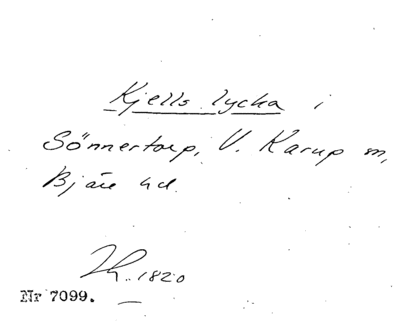 Kjells lycka i
Sönnertorp, V. Karup sn,
Bjäre hd.
Lh. 1820
Nr 7099.